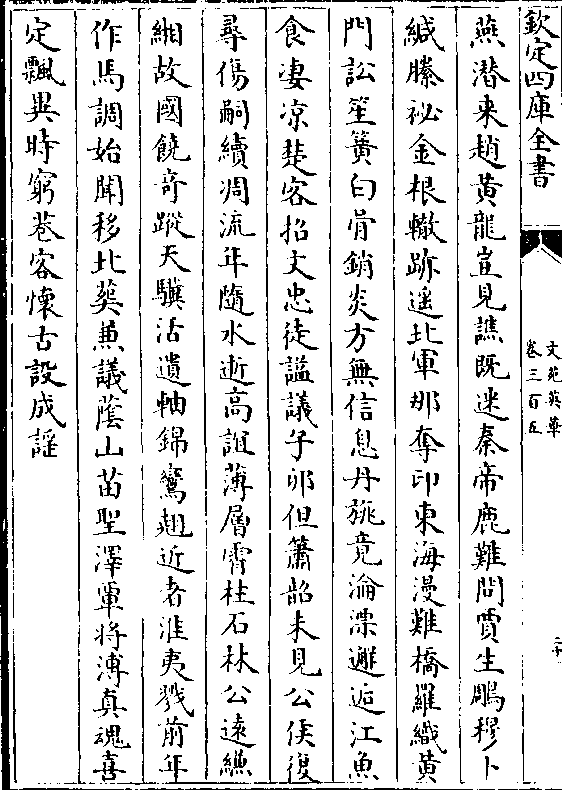 欽定四庫全書
文苑英華
卷三百五
燕潜来趙黄龍豈見譙既迷秦帝鹿難問賈生鵩穆卜
緘縢祕金根轍跡遥北軍那奪印東海漫難橋羅織黄
門訟笙簧白骨銷炎方無信息丹旐竟淪漂邂逅江魚
食凄凉楚客招文忠徒謚議子卯但簫韶未見公侯復
尋傷嗣續凋流年隨水逝高誼薄層霄柱石林公逺縑
緗故國饒奇蹤天驥活遺軸錦鸞翹近者淮夷戮前年
作馬調始聞移北葬兼議蔭山苗聖澤覃将溥真魂喜
定飄異時窮巷客懷古設成謡